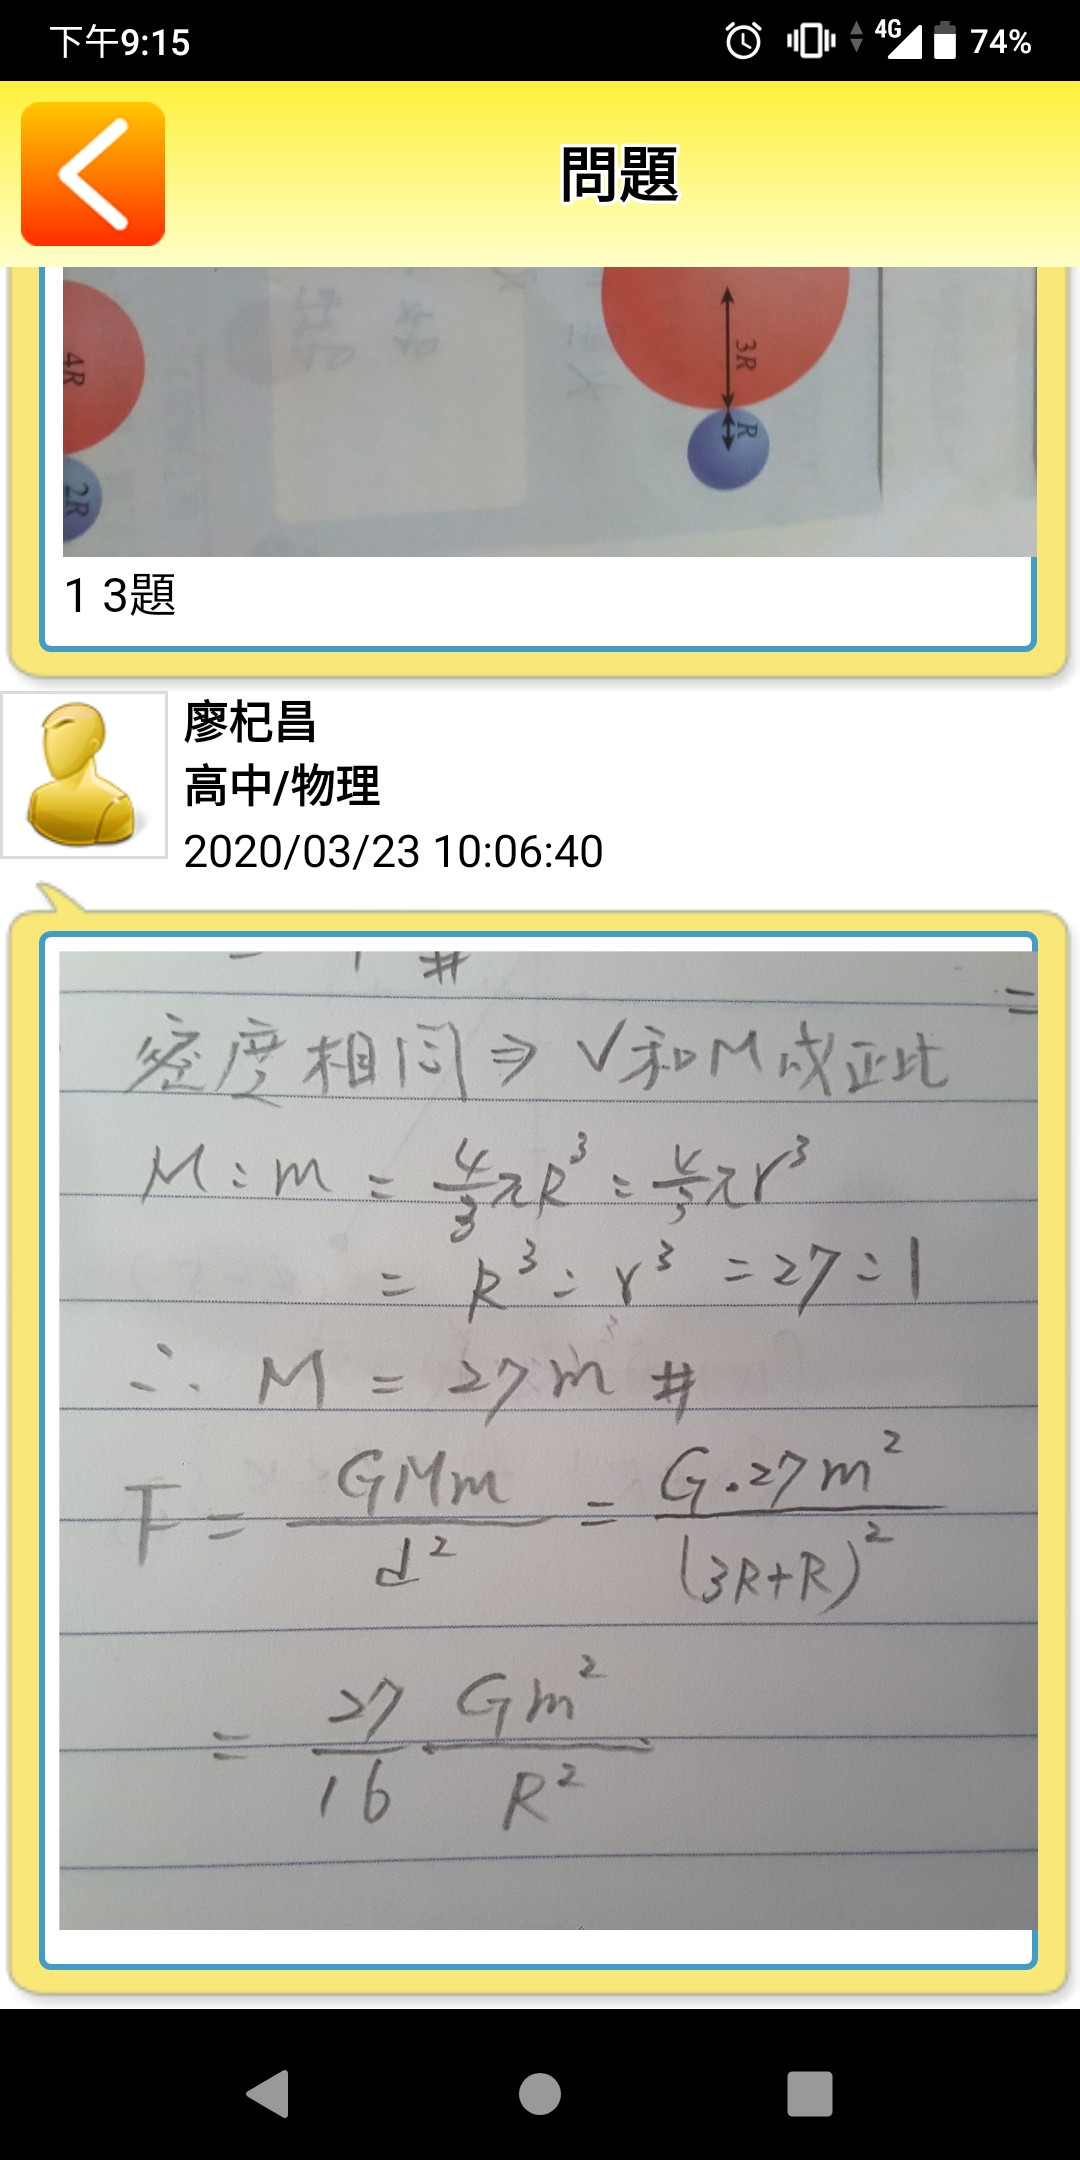 下午9:15 4G 74%
問題
4R
2R
3R
R
1 3題
廖杞昌
高中/物理
2020/03/23 10:06:40
#
=
密度相同⇒V和M成正比
M:m = 4/3 πR³ : 4/3 πr³
= R³ : r³ = 27:1
∴ M = 27m #
F = GMm/d² = G·27m²/(3R+R)²
= 27/16 Gm²/R²